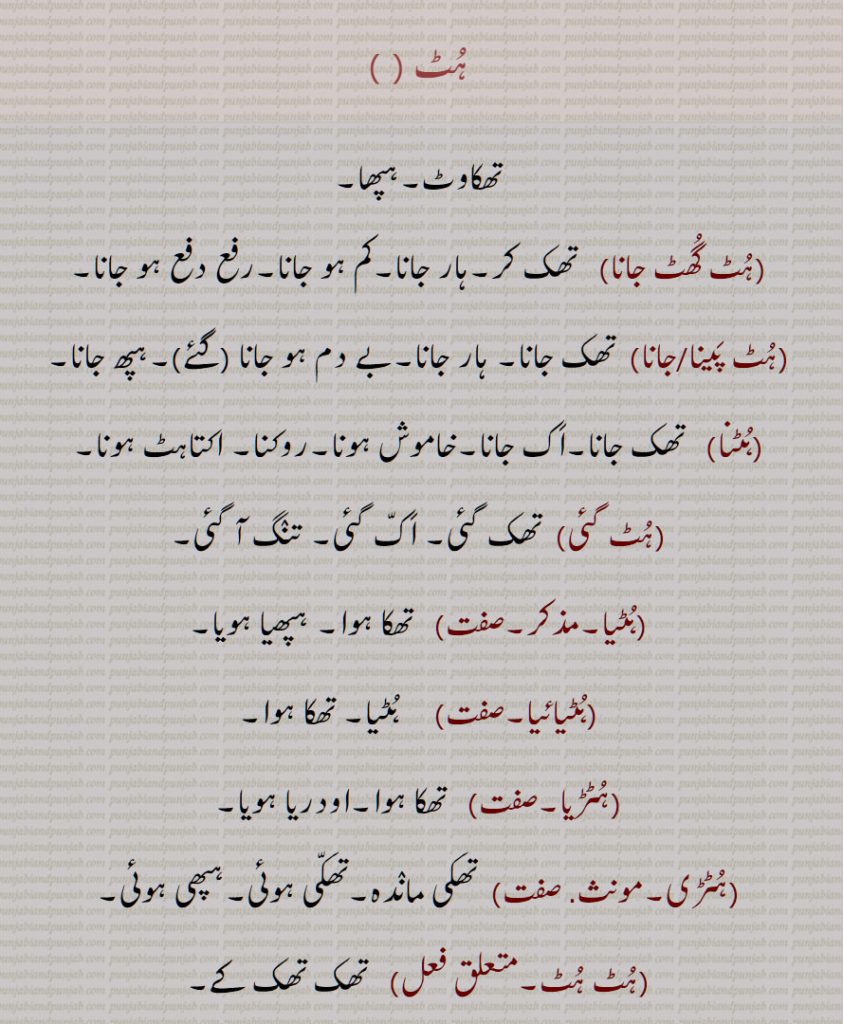 ہُٹ ( )
تھکاوٹ۔ہپھا۔
(ہُٹ گُھٹ جانا) تھک کر۔ہار جانا۔کم ہو جانا۔رفع دفع ہو جانا۔
(ہُٹ پَینا/جانا) تھک جانا۔ ہار جانا۔بے دم ہو جانا (گئے)۔ہپھ جانا۔
(ہُٹنا) تھک جانا۔اَک جانا۔خاموش ہونا۔روکنا۔ اکتاہٹ ہونا۔
(ہُٹ گئی) تھک گئی۔ اَکّ گئی۔ تنگ آ گئی۔
(ہُٹیا۔مذکر۔صفت) تھکا ہوا۔ ہپھیا ہویا۔
(ہُٹیائیا۔صفت) ہُٹیا۔ تھکا ہوا۔
(ہُٹڑیا۔صفت) تھکا ہوا۔اودریا ہویا۔
(ہُٹڑی۔مونث. صفت) تھکی ماندہ۔تھکّی ہوئی۔ہپھی ہوئی۔
(ہُٹ ہُٹ۔متعلق فعل) تھک تھک کے۔